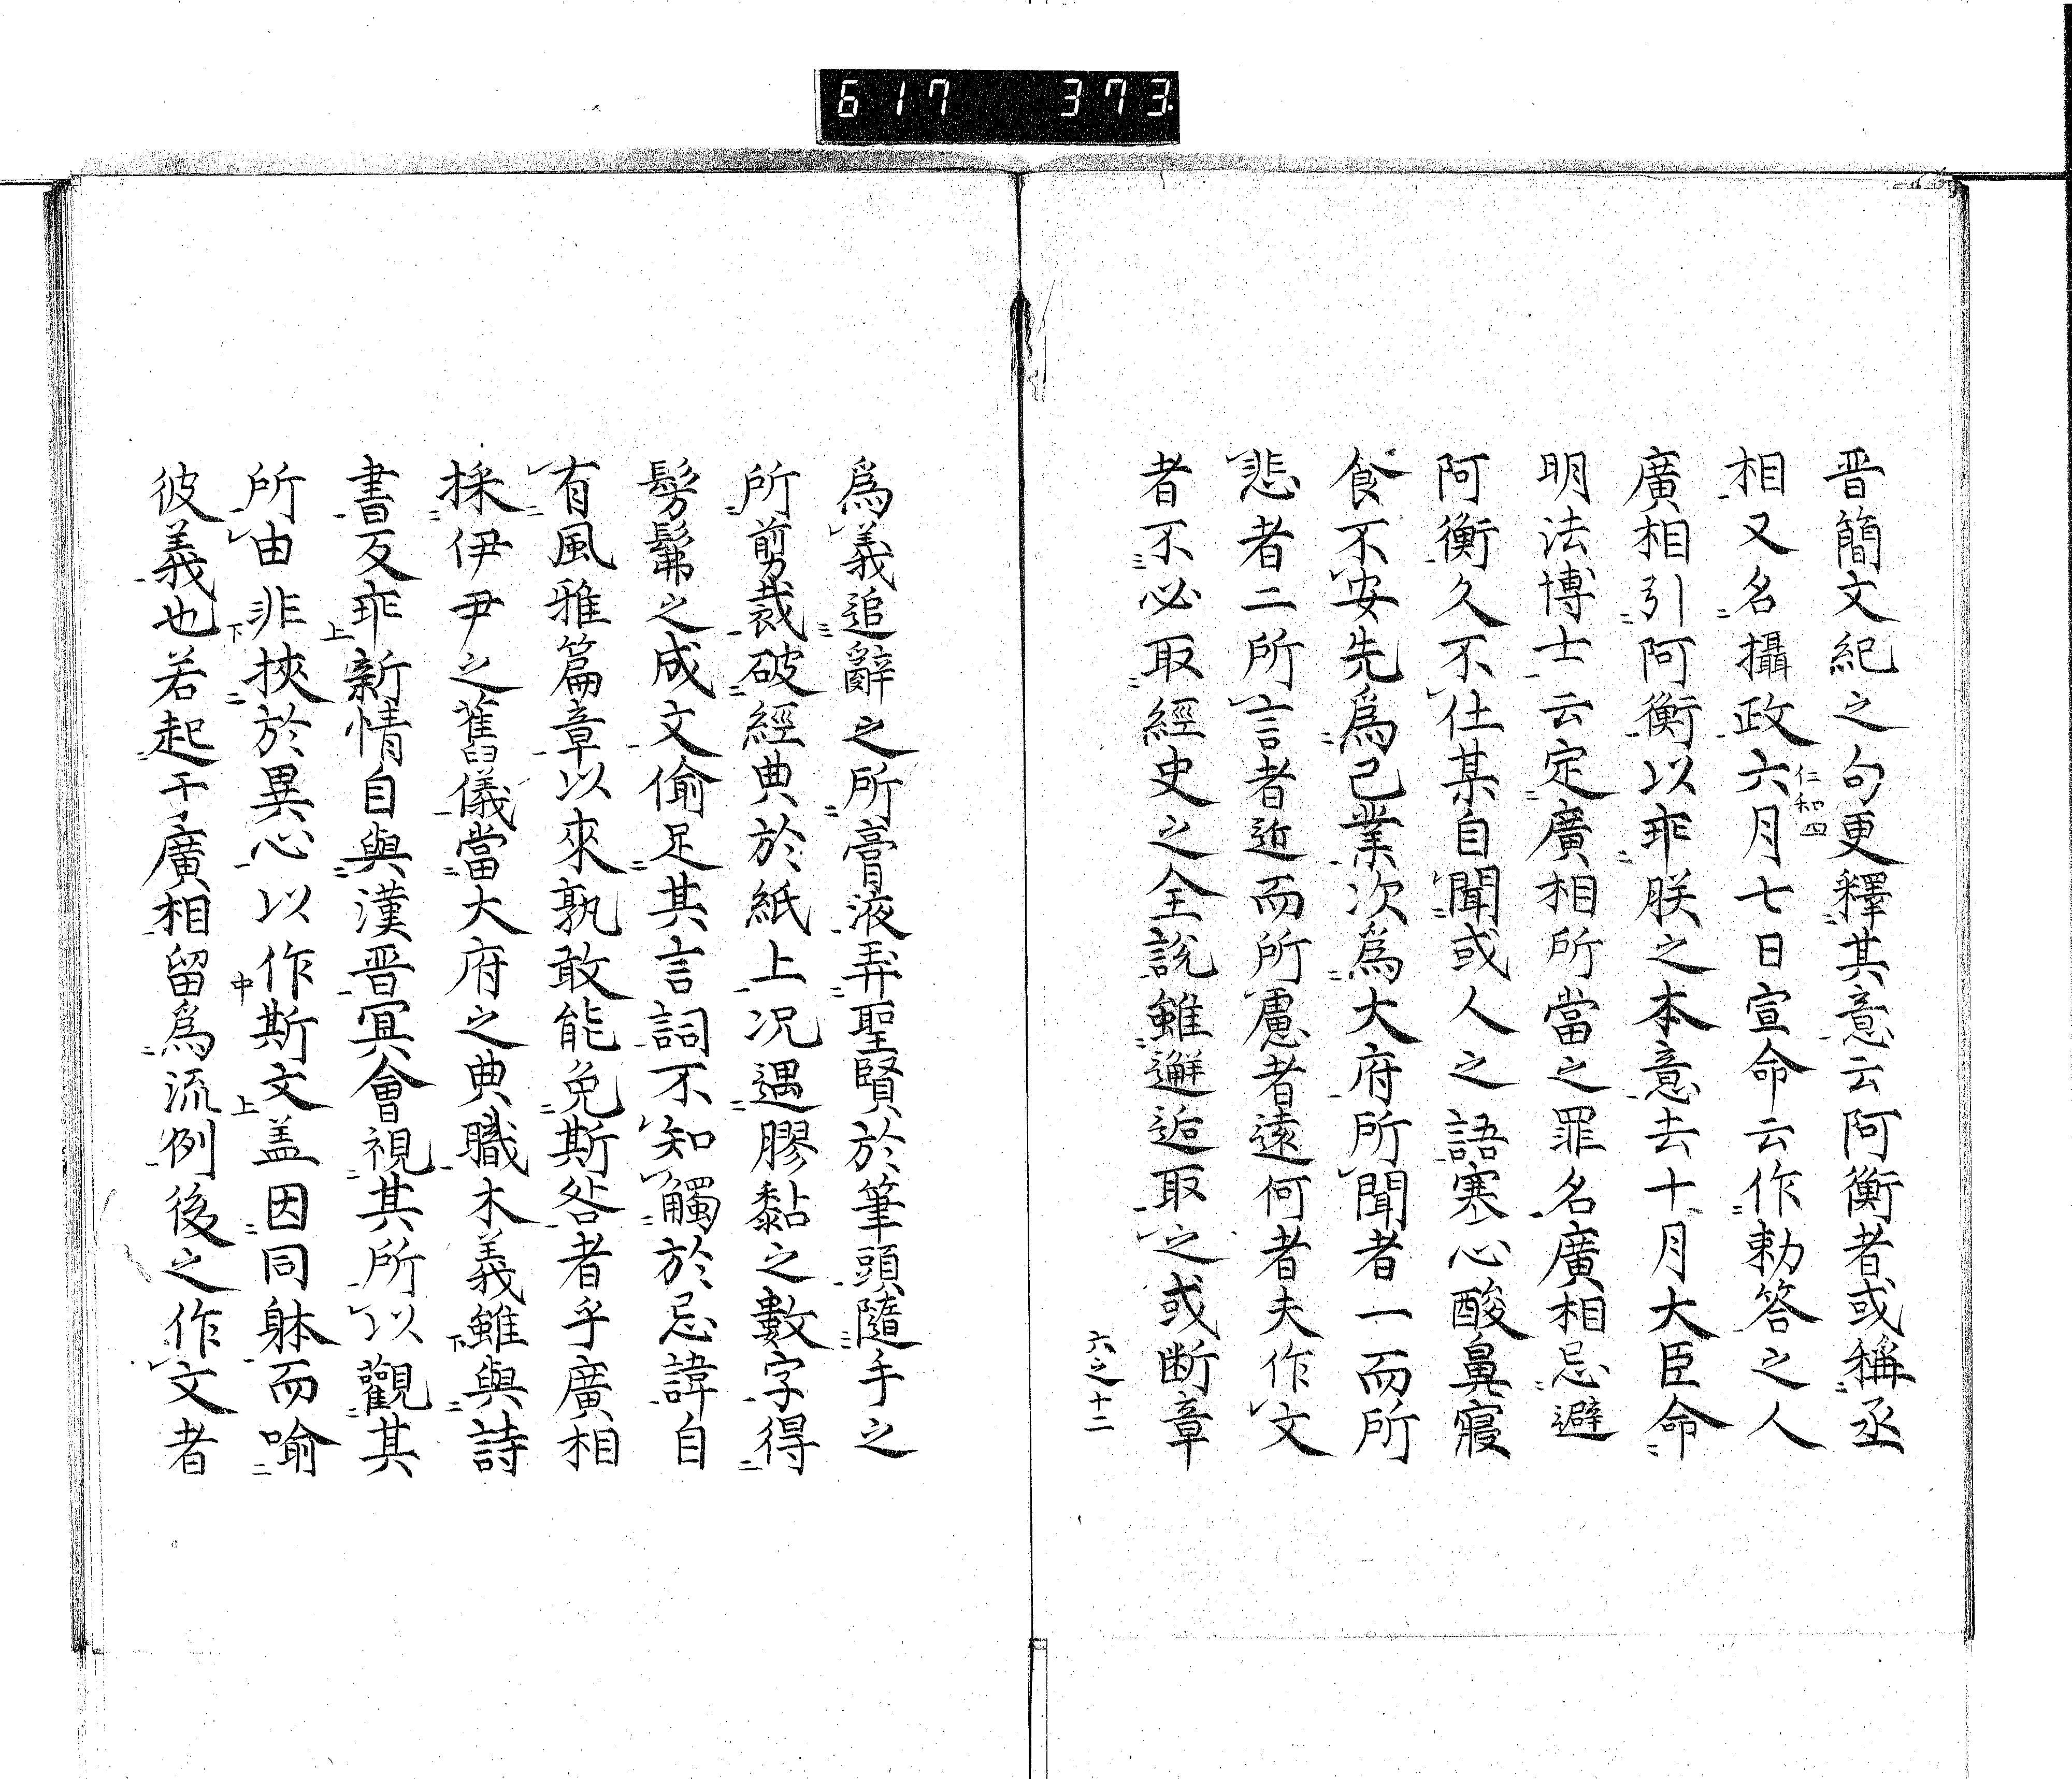 617 373
晋簡文紀之句更釋其意云阿衡者或稱丞
相又名攝政六月七日宣命云作勅答之人
仁和四
廣相引阿衡以乖朕之本意去十月大臣命
明法博士云定廣相所當之罪名廣相忌避
阿衡久不仕某自聞或人之語寒心酸鼻寢
食不安先爲己業次爲大府所聞者一而所
悲者二所言者近而所慮者遠何者夫作文
者不必取經史之全說雖邂逅取之或断章
六之十二
爲義追辭之所膏液弄聖賢於筆頭隨手之
所剪裁破經典於紙上况遇膠黏之數字得
髣髴之成文偷足其言詞不知觸於忌諱自
有風雅篇章以來孰敢能免斯咎者乎廣相
採伊尹之舊儀當大府之典職木義雖與詩
書反乖新情自與漢晋冥會視其所以觀其
所由非挾於異心以作斯文盖因同躰而喻
彼義也若起于廣相留爲流例後之作文者